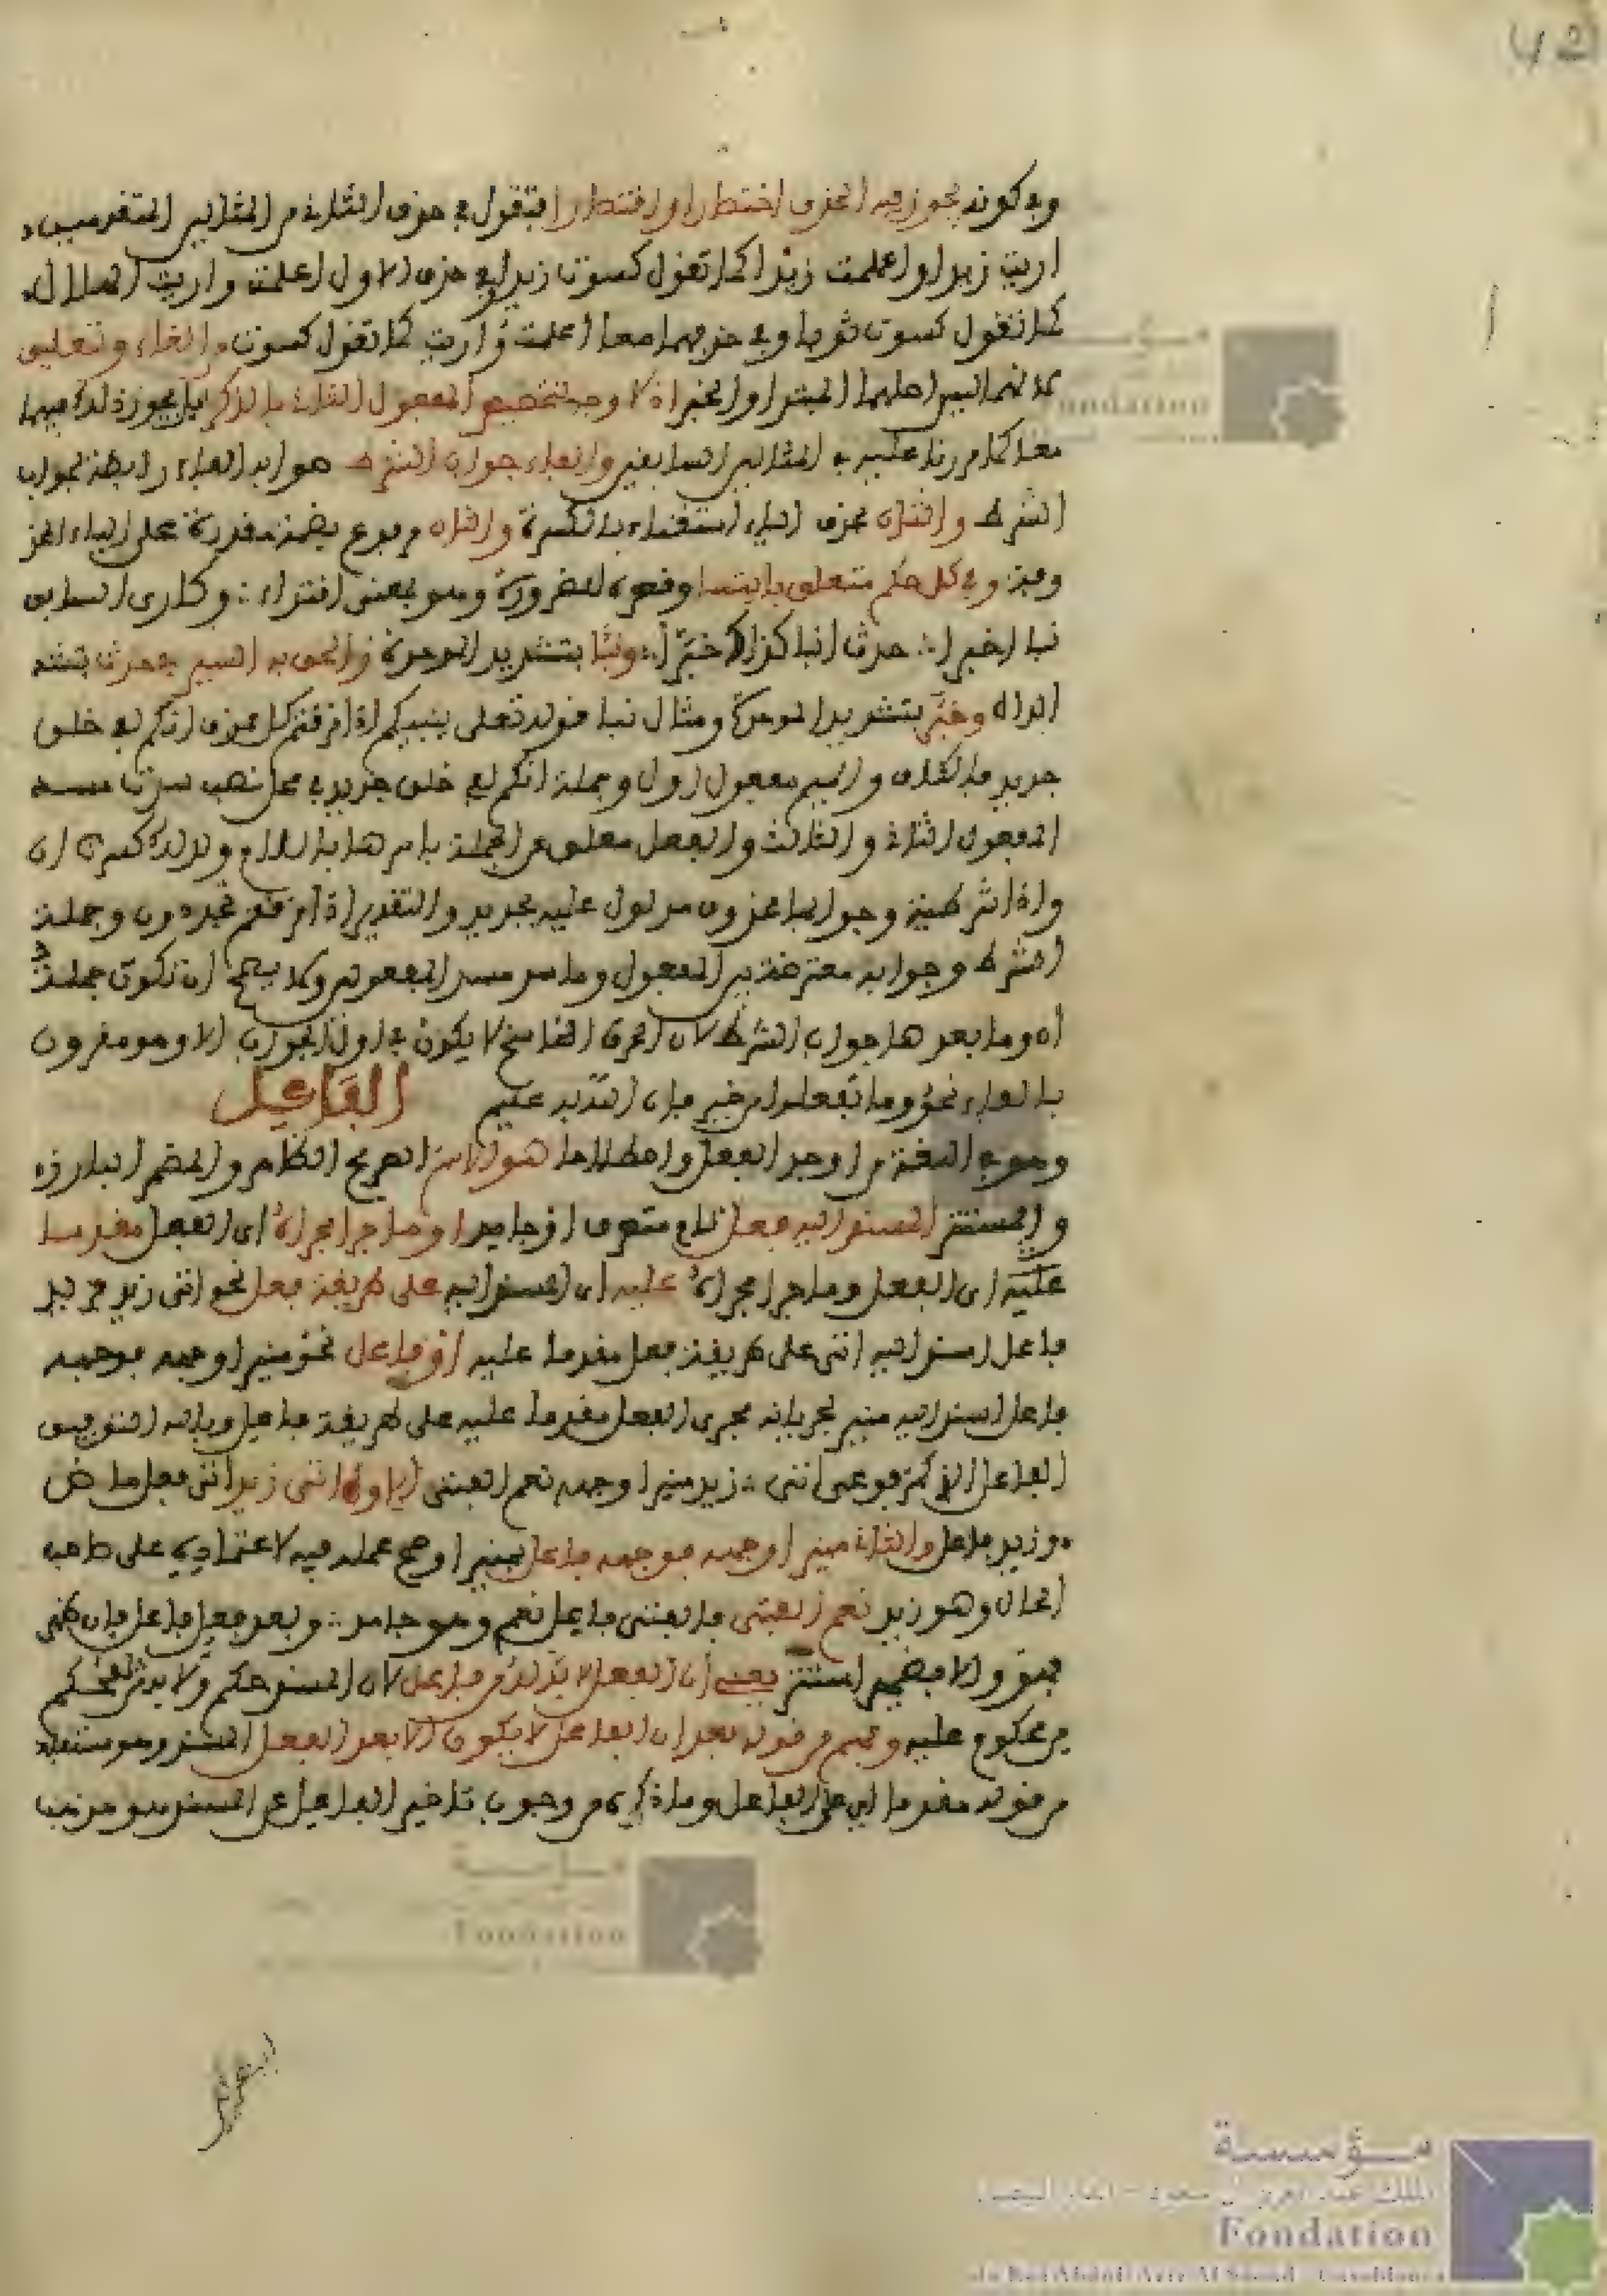 وفي كونه يجوز فيه الحذف اختصارا واقتصارا فتقول في حذف الثاني من المثالين المتقدمين
اريت زيدا واعلمت زيدا كما تقول كسوت زيدا وفي حذف الاول اعلمت واريت الهلال
كما تقول كسوت ثوبا وفي حذفهما معا اعلمت واريت كما تقول كسوت والغاء وتعليق
لانهما ليس اصلهما المبتدا والخبر اذ لا وجه لتخصيص المفعول الثاني بالذكر بل يجوز ذلك فيهما
معا كما مررنا عليه في المثالين السابقين والفاء جواب الشرط هو ابدا الفاء رابطة لجواب
الشرط والثان بحذف الياء استغناء بالكسرة والثان مرفوع بضمة مقدرة على الياء المحذ
وفة وفي كل حكم متعلق بايتسا وقصره للضرورة وهو بمعنى اقتداء وكارى السابق
نبا اخبرا حدث انبا كذاك خبرا ونبا بتشديد الموحدة والحق به السير في حدث بتشد
الدال وخبر بتشديد الموحدة ومثال نبا قوله تعلى ينبيكم اذا مزقتم كل ممزق انكم لفي خلق
جديد فالكاف والميم مفعول اول وجملة انكم لفي خلق جديد في محل نصب سدت مسد
المفعول الثاني والثالث والفعل معلق عن الجملة باسرها باللام ولذلك كسرت ان
واذا شرطية وجوابها محذوف مدلول عليه بجديد والتقدير اذا مزقتم تجددون وجملة
الشرط وجوابه معترضة بين المفعول وما سد مسد المفعولين ولا يصح ان تكون جملة
ان وما بعدها جواب الشرط لان الحرف الناسخ لا يكون في اول الجواب الا وهو مقرون
بالفاء نحو وما تفعلوا من خير فان الله به عليم الفاعل
وهو في اللغة من اوجد الفعل واصطلاحا هو الاسم الصريح الظاهر والمضمر البارزه
والمستتر المسند اليه فعل تام متصرف او جامد او ما جرا مجراه اي الفعل مقدما
عليه اي الفعل وما جرا مجراه عليه اي المسند اليه على طريقة فعل نحو اتى زيد فزيد
فاعل اسند اليه اتى على طريقة فعل مقدما عليه او فاعل نحو منيرا وجهه فوجهه
فاعل اسند اليه منير لجريانه مجرى الفعل مقدما عليه على طريقة فاعل وبالله التوفيق
الفاعل الذي كمرفوعي اتى زيد منيرا وجهه نعم الفتى الاول اتى زيد اتى فعل ماض
وزيد فاعل والثاني منيرا وجهه فوجهه فاعل بمنيرا وصح عمله فيه لاعتماده على صاحب
الحال وهو زيد نعم الفتى فالفتى فاعل نعم وهو جامد وبعد فعل فاعل فان ظهر
فهو والا فضمير استتر يعني ان الفعل لا بد له من فاعل لان المسند حكم ولا بد للحكم
من محكوم عليه وفهم من قوله بعد ان الفاعل لا يكون الا بعد الفعل المسند وهو مستفاد
من قوله مقدما اي على الفاعل وما ذكره من وجوب تاخير الفاعل عن المسند هو مذهب
البصريين
مؤسسة
الملك عبد العزيز آل سعود - الدار البيضاء
Fondation
du Roi Abdul-Aziz Al Saoud - Casablanca